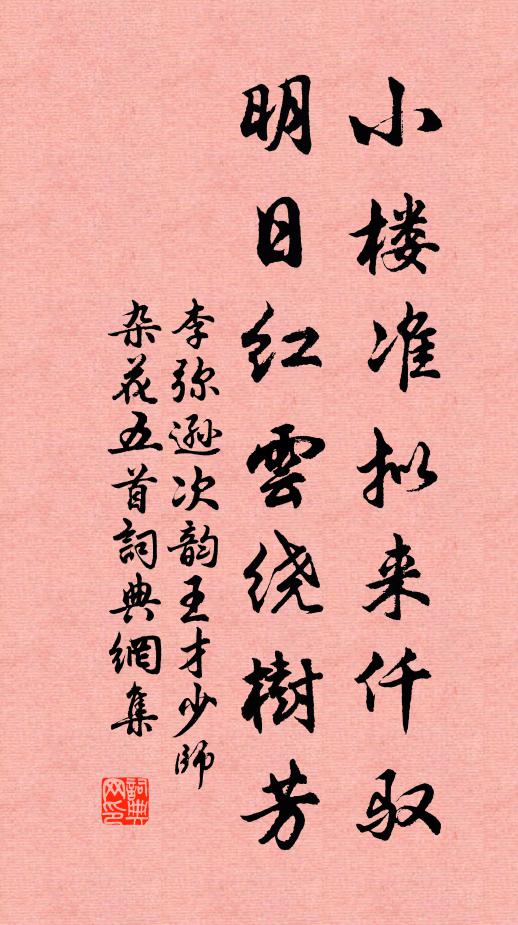 小楼准拟来仟驭
明日红雲绕樹芳
李弥逊次韵王才少師
杂花五首詞典網集
詞典网印